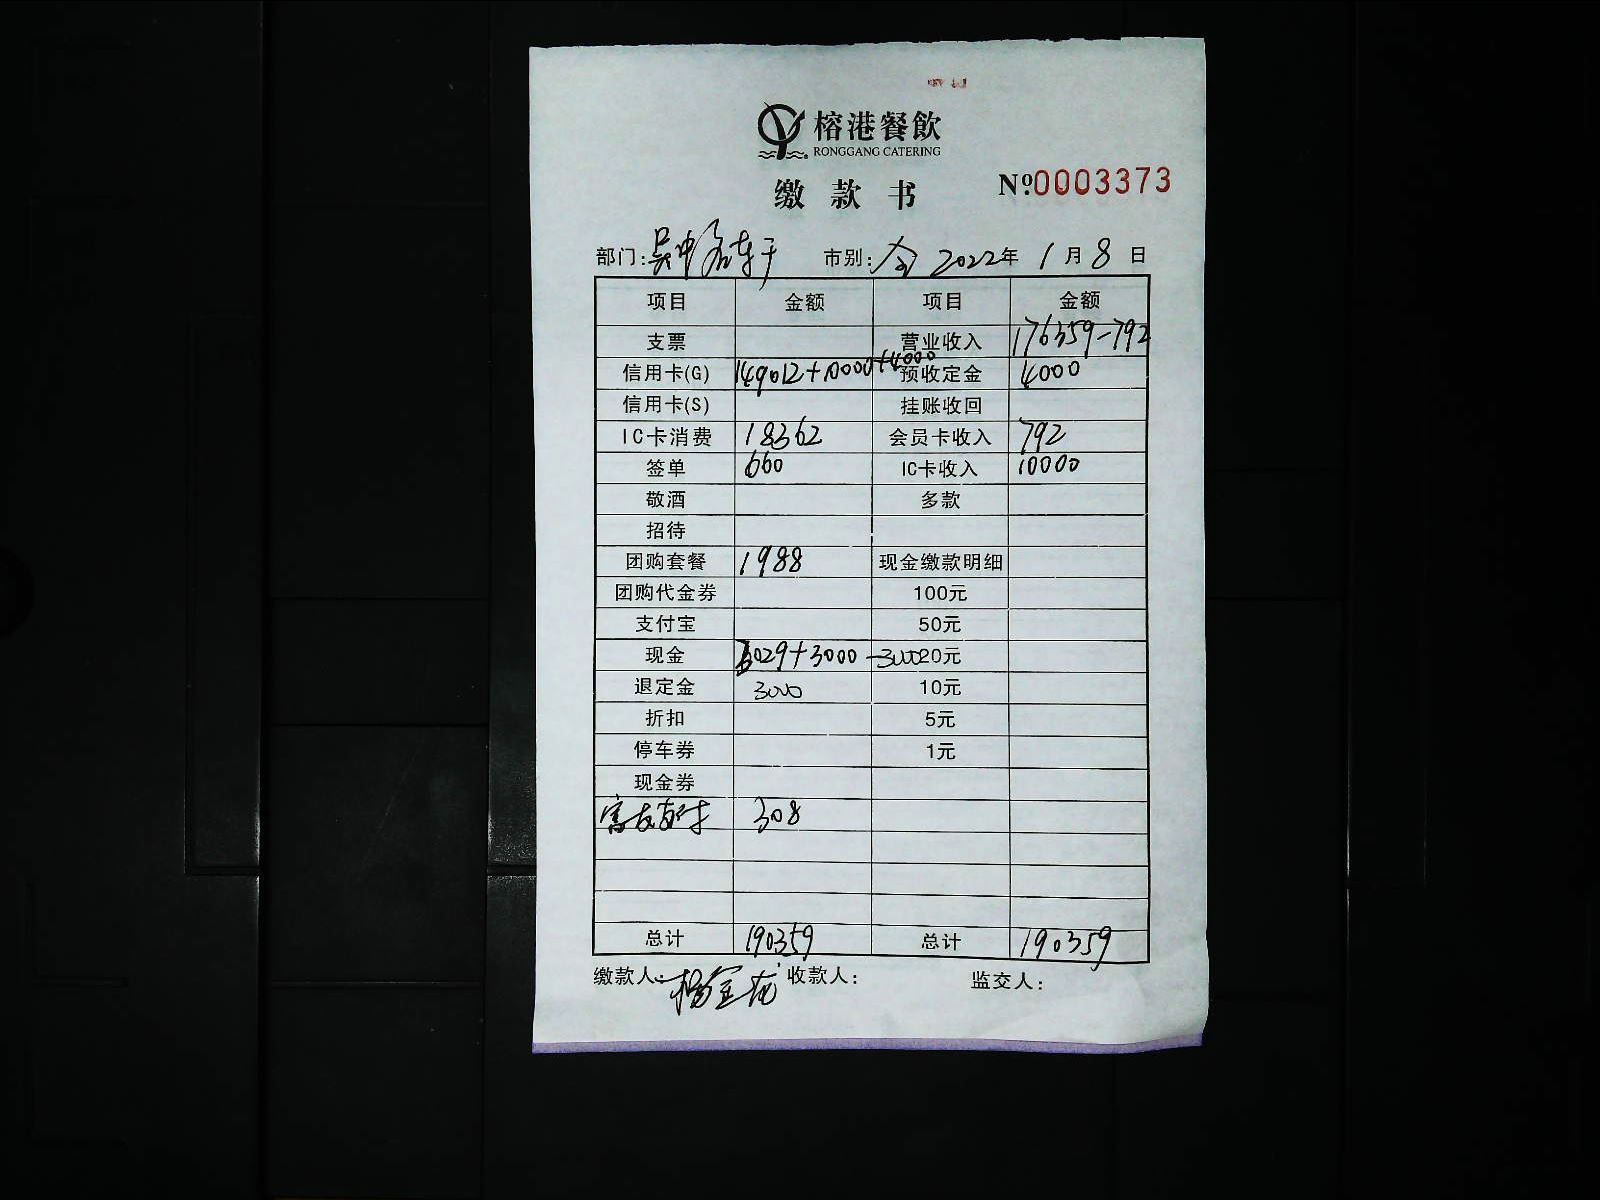 榕港餐飲
RONGGANG CATERING
缴款书
№0003373
部门:吴中 市别:全 2022年 1月 8日
项目 金额 项目 金额
支票 营业收入 176359-792
信用卡(G) 149012+10000+4000 预收定金 4000
信用卡(S) 挂账收回
IC卡消费 18362 会员卡收入 792
签单 660 IC卡收入 10000
敬酒 多款
招待
团购套餐 1988 现金缴款明细
团购代金券 100元
支付宝 50元
现金 3029+3000-3000 20元
退定金 3000 10元
折扣 5元
停车券 1元
现金券
富友支付 308
总计 190359 总计 190359
缴款人:杨金 收款人: 监交人: